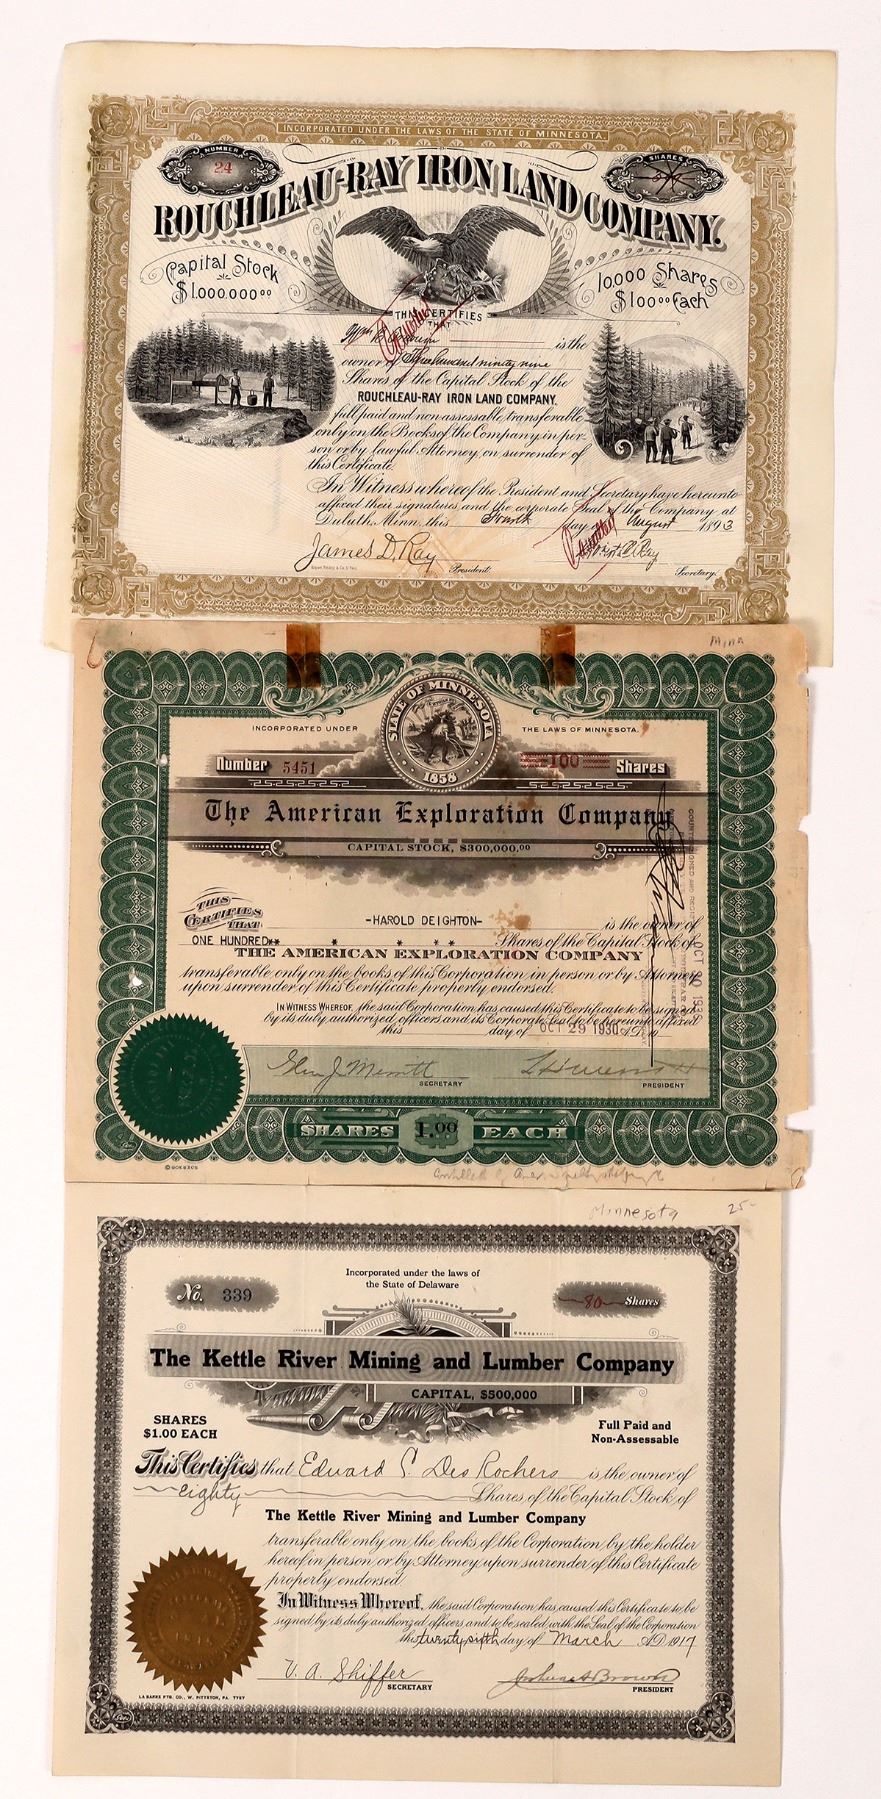 INCORPORATED UNDER THE LAWS OF THE STATE OF MINNESOTA.
NUMBER
24
SHARES
ROUCHLEAU-RAY IRON LAND COMPANY.
Capital Stock
$1.000.000⁰⁰
10.000 Shares
$100⁰⁰ Each
THIS CERTIFIES
THAT
Cancelled
is the
owner of Three hundred ninety nine
Shares of the Capital Stock of the
ROUCHLEAU-RAY IRON LAND COMPANY.
full paid and non-assessable, transferable
only on the Books of the Company in per-
son or by lawful Attorney, on surrender of
this Certificate.
In Witness whereof the President and Secretary have hereunto
affixed their signatures and the corporate Seal of the Company at
Duluth, Minn. this Fourth day of August 1893
Cancelled
James D. Ray
President.
Ray
Secretary.
Minn
STATE OF MINNESOTA
1858
INCORPORATED UNDER THE LAWS OF MINNESOTA.
Number 5451
100 Shares
The American Exploration Company
CAPITAL STOCK, $300,000.⁰⁰
COUNTERSIGNED AND REGISTERED
OCT 30 1930
THIS CERTIFIES THAT
-HAROLD DEIGHTON-
is the owner of
ONE HUNDRED** * * * * Shares of the Capital Stock of
THE AMERICAN EXPLORATION COMPANY
transferable only on the books of this Corporation in person or by Attorney
upon surrender of this Certificate properly endorsed.
IN WITNESS WHEREOF, the said Corporation has caused this Certificate to be signed
by its duly authorized officers and its Corporate Seal to be hereunto affixed
this day of OCT 29 1930 A.D.
Glen J. Merritt
SECRETARY
PRESIDENT
SHARES 1.⁰⁰ EACH
© GOES 3305
Controlled by
Minnesota
25-
Incorporated under the laws of
the State of Delaware
No. 339
80 Shares
The Kettle River Mining and Lumber Company
CAPITAL, $500,000
SHARES
$1.00 EACH
Full Paid and
Non-Assessable
This Certifies that Edward S. Des Rochers is the owner of
Eighty Shares of the Capital Stock of
The Kettle River Mining and Lumber Company
transferable only on the books of the Corporation by the holder
hereof in person or by Attorney upon surrender of this Certificate
properly endorsed.
In Witness Whereof, the said Corporation has caused this Certificate to be
signed by its duly authorized officers and to be sealed with the Seal of the Corporation
this twenty sixth day of March A.D. 1917
V. A. Shiffer
SECRETARY
Joshua A Brown
PRESIDENT
LA BARRE PTG. CO., W. PITTSTON, PA. 7787
Goes